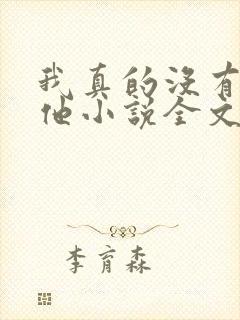 我真的没有
他小说全文
李育森